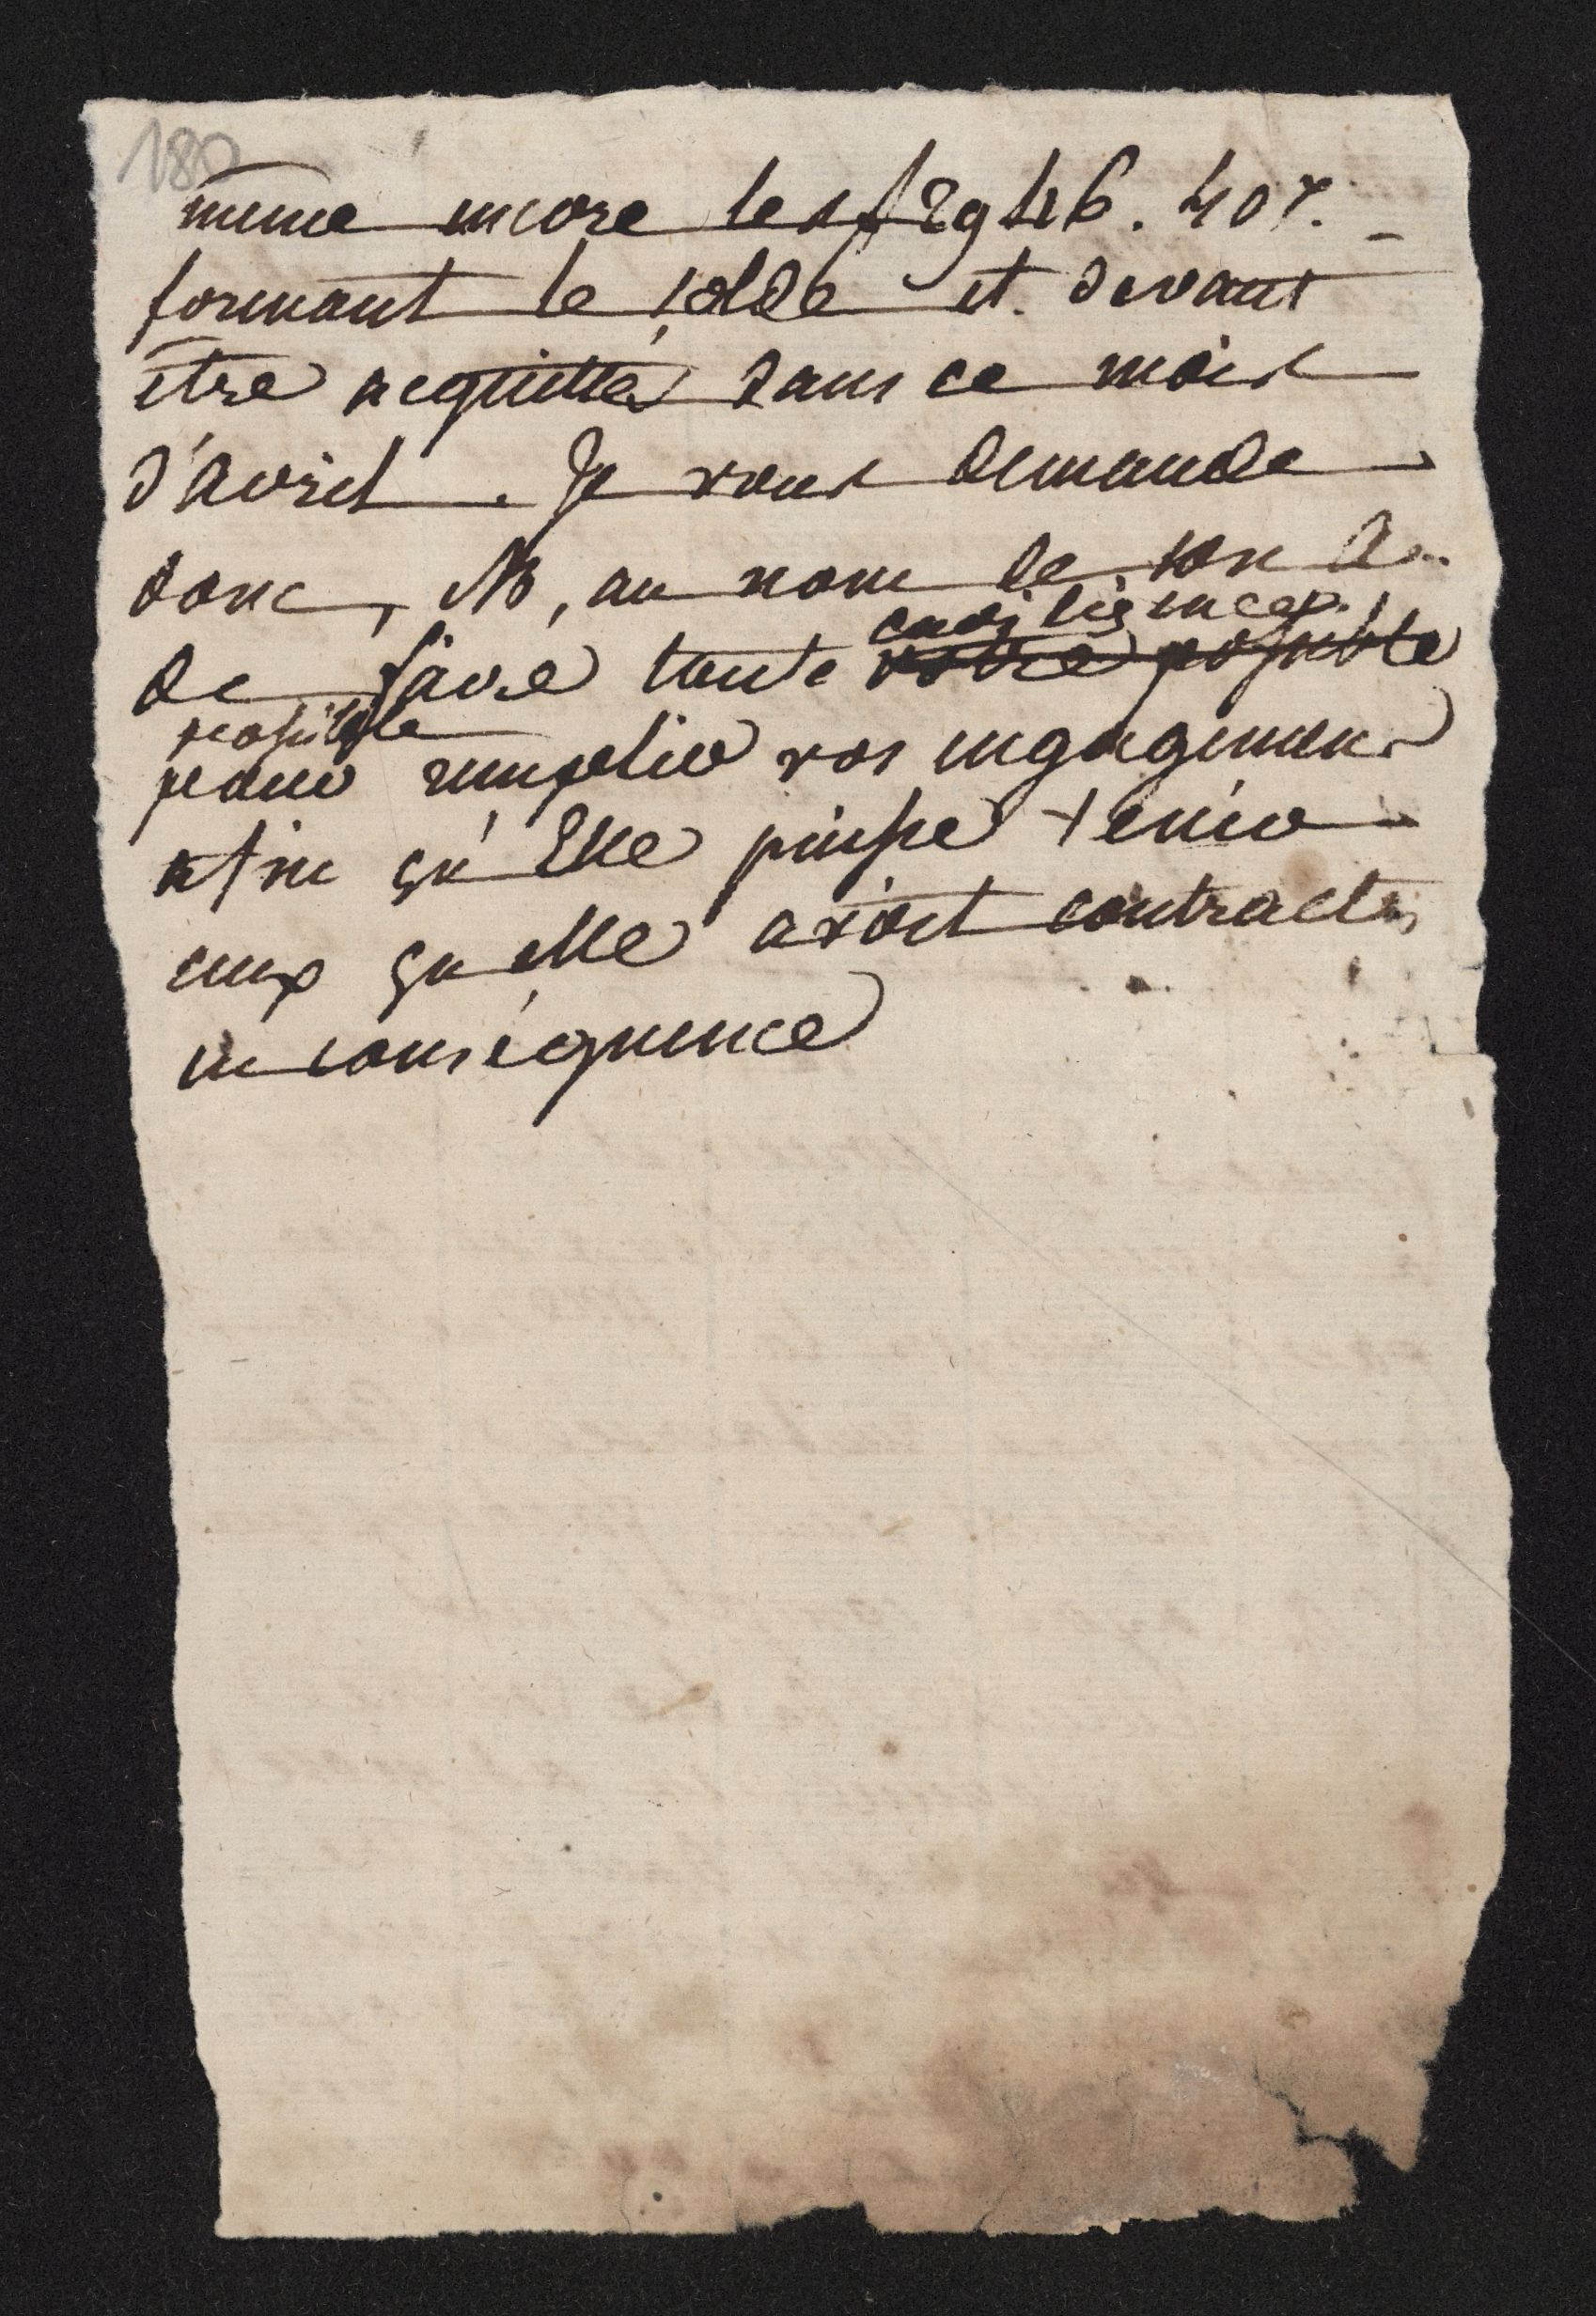 180
même encore les f 29446. 40 r.
formant le solde et devant
être acquittés dans ce mois
d'avril. Je vous demande
donc, M, au nom de son A..
diligence
de faire toute votre possible
possible
pour remplir vos engagemens
afin qu'Elle puisse tenir
ceux qu'elle avoit contractés
en conséquence